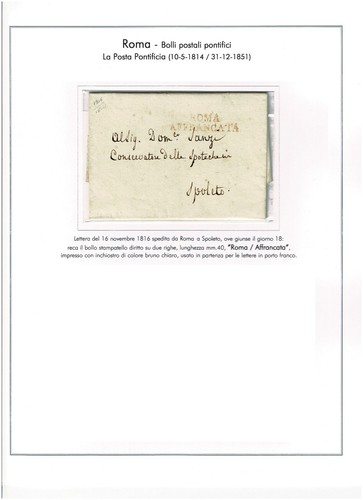 Roma - Bolli postali pontifici
La Posta Pontificia (10-5-1814 / 31-12-1851)
ROMA
AFFRANCATA
Al Sig. Dom.co
Conservatore delle Ipoteche in
Spoleto.
Lettera del 16 novembre 1816 spedita da Roma a Spoleto, ove giunse il giorno 18:
reca il bollo stampatello diritto su due righe, lunghezza mm.40, "Roma / Affrancata",
impresso con inchiostro di colore bruno chiaro, usato in partenza per le lettere in porto franco.